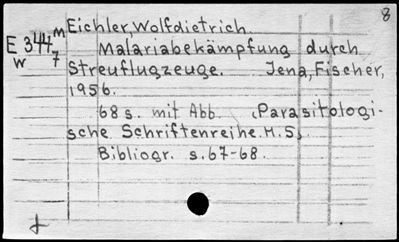 8
E 344 M
W 7
Eichler, Wolfdietrich.
Malariabekämpfung durch
Streuflugzeuge. Jena, Fischer,
1956.
68 s. mit Abb. (Parasitologi-
sche Schriftenreihe. H.5).
Bibliogr. s. 67-68.